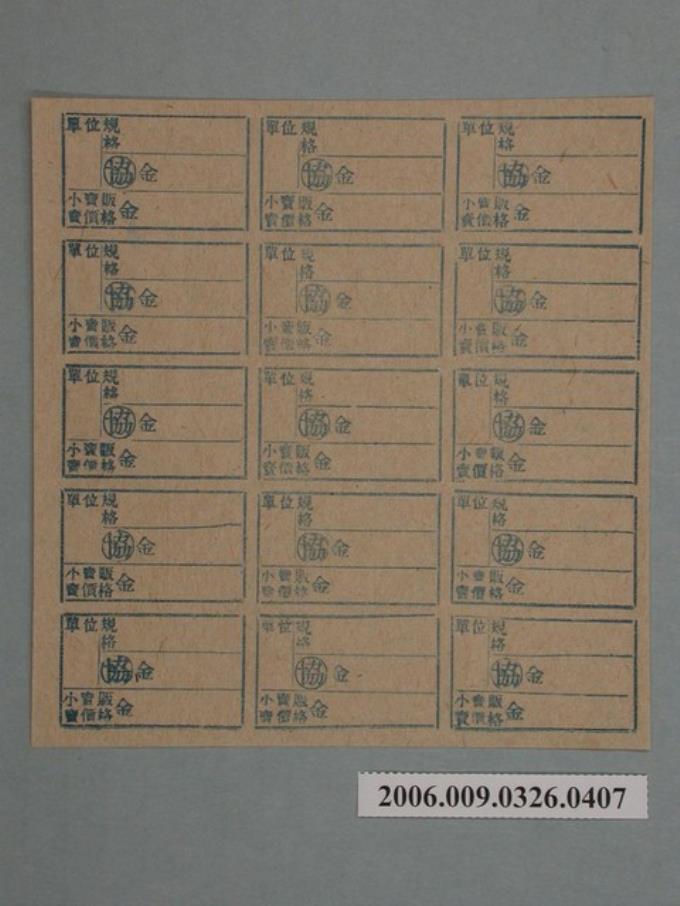 單位規
格
協金
小賣販
賣價格 金
單位規
格
協金
小賣販
賣價格 金
單位規
格
協金
小賣販
賣價格 金
單位規
格
協金
小賣販
賣價格 金
單位規
格
協金
小賣販
賣價格 金
單位規
格
協金
小賣販
賣價格 金
單位規
格
協金
小賣販
賣價格 金
單位規
格
協金
小賣販
賣價格 金
單位規
格
協金
小賣販
賣價格 金
單位規
格
協金
小賣販
賣價格 金
單位規
格
協金
小賣販
賣價格 金
單位規
格
協金
小賣販
賣價格 金
單位規
格
協金
小賣販
賣價格 金
單位規
格
協金
小賣販
賣價格 金
單位規
格
協金
小賣販
賣價格 金
2006.009.0326.0407